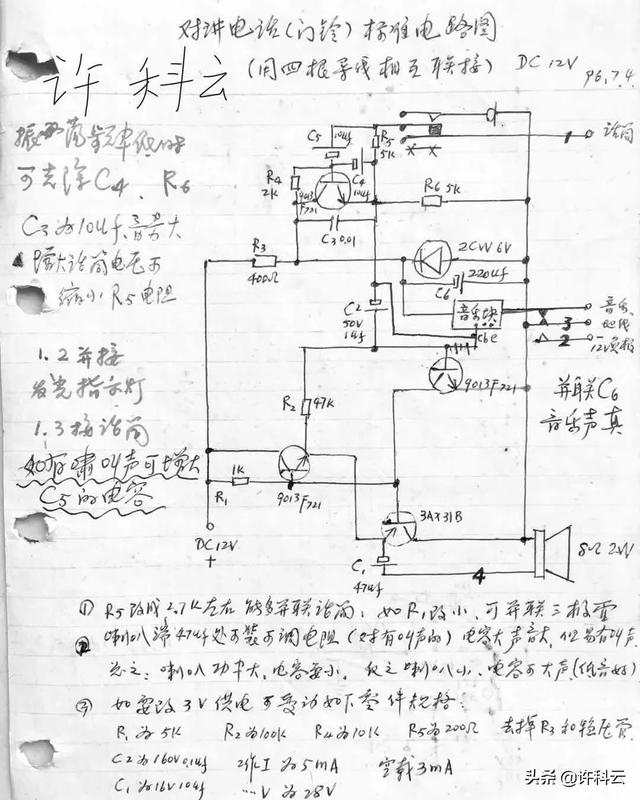 对讲电话(门铃)标准电路图
(用四根导线相互联接) DC 12V 96.7.4.
许科云
可去除C4、R6
C3为10uf、音旁大
增大话筒电压可
缩小R5电阻
1.2并接
发光指示灯
1.3接话筒
如有啸叫声可增大
C5的电容
C5 10uf
R5 5K
R4 2K
C4 10uf
9013F721
R6 5K
C3 0.01
R3 400Ω
2CW 6V
220uf
C6
音乐块
cbe
C2 50V 1uf
9013F721
R2 47K
1K
R1
9013F721
3AX31B
DC12V
+
C1 47uf
4
8Ω 2W
1 话筒
音乐
3 地线
2 12V负极
并联C6
音乐声真
① R5改成2.7K左右能多并联话筒,如R1改小,可并联三极管
② 喇叭端47uf处可装可调电阻(对有叫声的)电容大声音大,但易有叫声
总之:喇叭功率大,电容要小,反之喇叭小、电容可大声(低音好)
③ 如要改3V供电可变动如下零件规格:
R1为5K R2为100K R4为10K R5为200Ω 去掉R3和稳压管
C2为160V0.1uf 工作I为5mA 空载3mA
C1为16V10uf …V为2.8V
头条@许科云